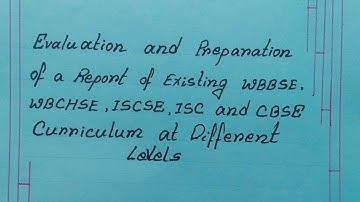 Evaluation and Preparation
of a Report of Existing WBBSE.
WBCHSE, ISCSE, ISC and CBSE
Curriculum at Different
Levels